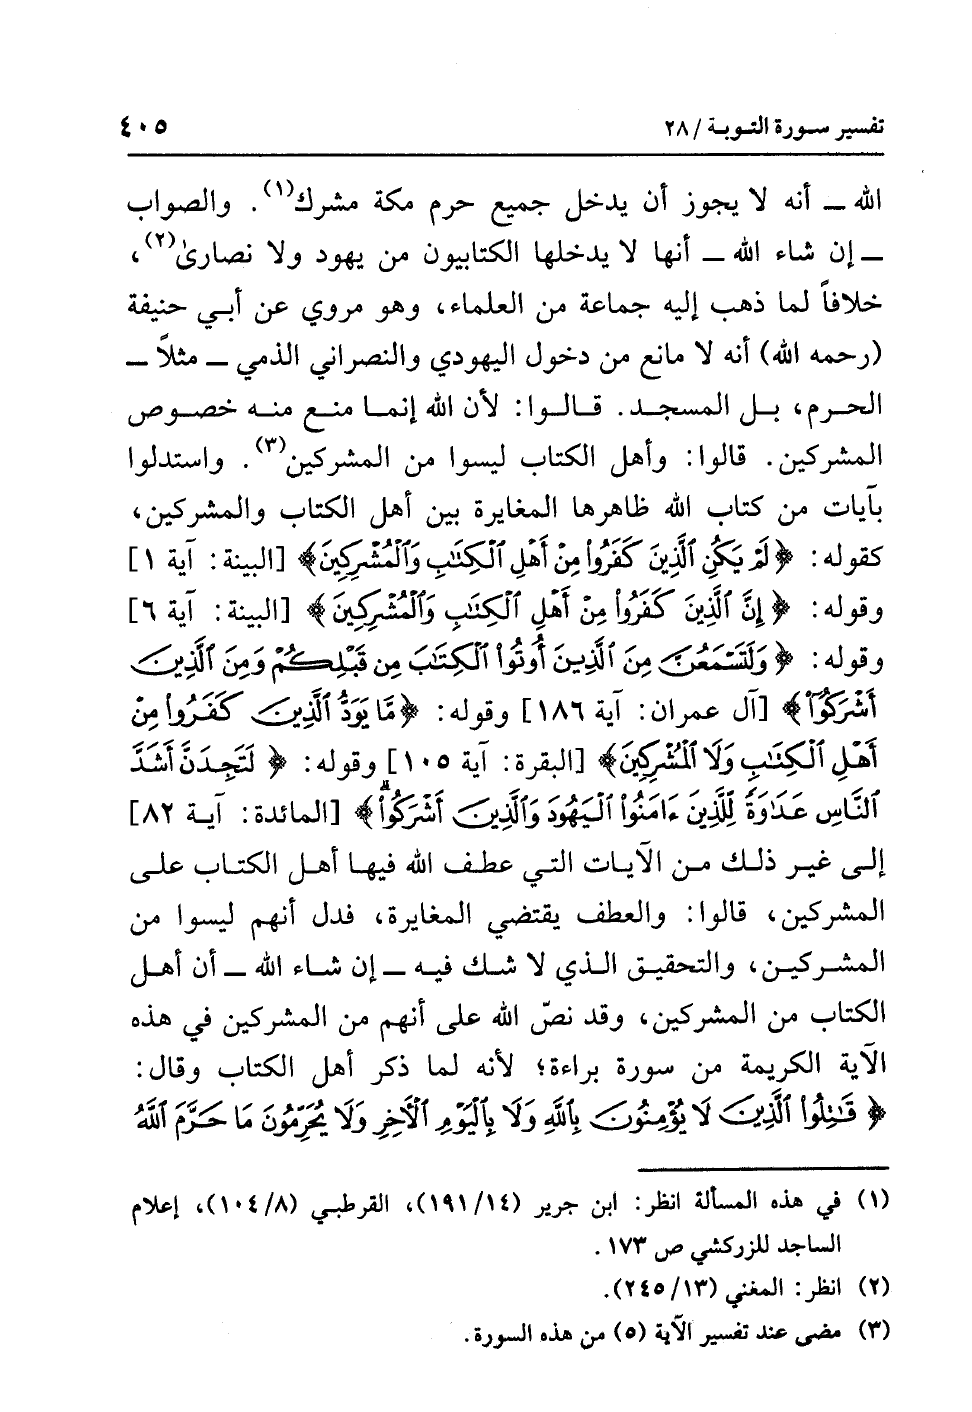 تفسير سورة التوبة / ٢٨ ٤٠٥
الله ــ أنه لا يجوز أن يدخل جميع حرم مكة مشرك(١). والصواب
ــ إن شاء الله ــ أنها لا يدخلها الكتابيون من يهود ولا نصارىٰ(٢)،
خلافاً لما ذهب إليه جماعة من العلماء، وهو مروي عن أبي حنيفة
(رحمه الله) أنه لا مانع من دخول اليهودي والنصراني الذمي ــ مثلاً ــ
الحرم، بل المسجد. قالوا: لأن الله إنما منع منه خصوص
المشركين. قالوا: وأهل الكتاب ليسوا من المشركين(٣). واستدلوا
بآيات من كتاب الله ظاهرها المغايرة بين أهل الكتاب والمشركين،
كقوله: ﴿لَمْ يَكُنِ ٱلَّذِينَ كَفَرُوا۟ مِنْ أَهْلِ ٱلْكِتَـٰبِ وَٱلْمُشْرِكِينَ﴾ [البينة: آية ١]
وقوله: ﴿إِنَّ ٱلَّذِينَ كَفَرُوا۟ مِنْ أَهْلِ ٱلْكِتَـٰبِ وَٱلْمُشْرِكِينَ﴾ [البينة: آية ٦]
وقوله: ﴿وَلَتَسْمَعُنَّ مِنَ ٱلَّذِينَ أُوتُوا۟ ٱلْكِتَـٰبَ مِن قَبْلِكُمْ وَمِنَ ٱلَّذِينَ
أَشْرَكُوٓا۟﴾ [آل عمران: آية ١٨٦] وقوله: ﴿مَّا يَوَدُّ ٱلَّذِينَ كَفَرُوا۟ مِنْ
أَهْلِ ٱلْكِتَـٰبِ وَلَا ٱلْمُشْرِكِينَ﴾ [البقرة: آية ١٠٥] وقوله: ﴿لَتَجِدَنَّ أَشَدَّ
ٱلنَّاسِ عَدَٰوَةً لِّلَّذِينَ ءَامَنُوا۟ ٱلْيَهُودَ وَٱلَّذِينَ أَشْرَكُوا۟ۖ﴾ [المائدة: آية ٨٢]
إلى غير ذلك من الآيات التي عطف الله فيها أهل الكتاب على
المشركين، قالوا: والعطف يقتضي المغايرة، فدل أنهم ليسوا من
المشركين، والتحقيق الذي لا شك فيه ــ إن شاء الله ــ أن أهل
الكتاب من المشركين، وقد نصّ الله على أنهم من المشركين في هذه
الآية الكريمة من سورة براءة؛ لأنه لما ذكر أهل الكتاب وقال:
﴿قَـٰتِلُوا۟ ٱلَّذِينَ لَا يُؤْمِنُونَ بِٱللَّهِ وَلَا بِٱلْيَوْمِ ٱلْـَٔاخِرِ وَلَا يُحَرِّمُونَ مَا حَرَّمَ ٱللَّهُ
(١) في هذه المسألة انظر: ابن جرير (١٤/١٩١)، القرطبي (٨/١٠٤)، إعلام
الساجد للزركشي ص ١٧٣.
(٢) انظر: المغني (١٣/٢٤٥).
(٣) مضى عند تفسير الآية (٥) من هذه السورة.